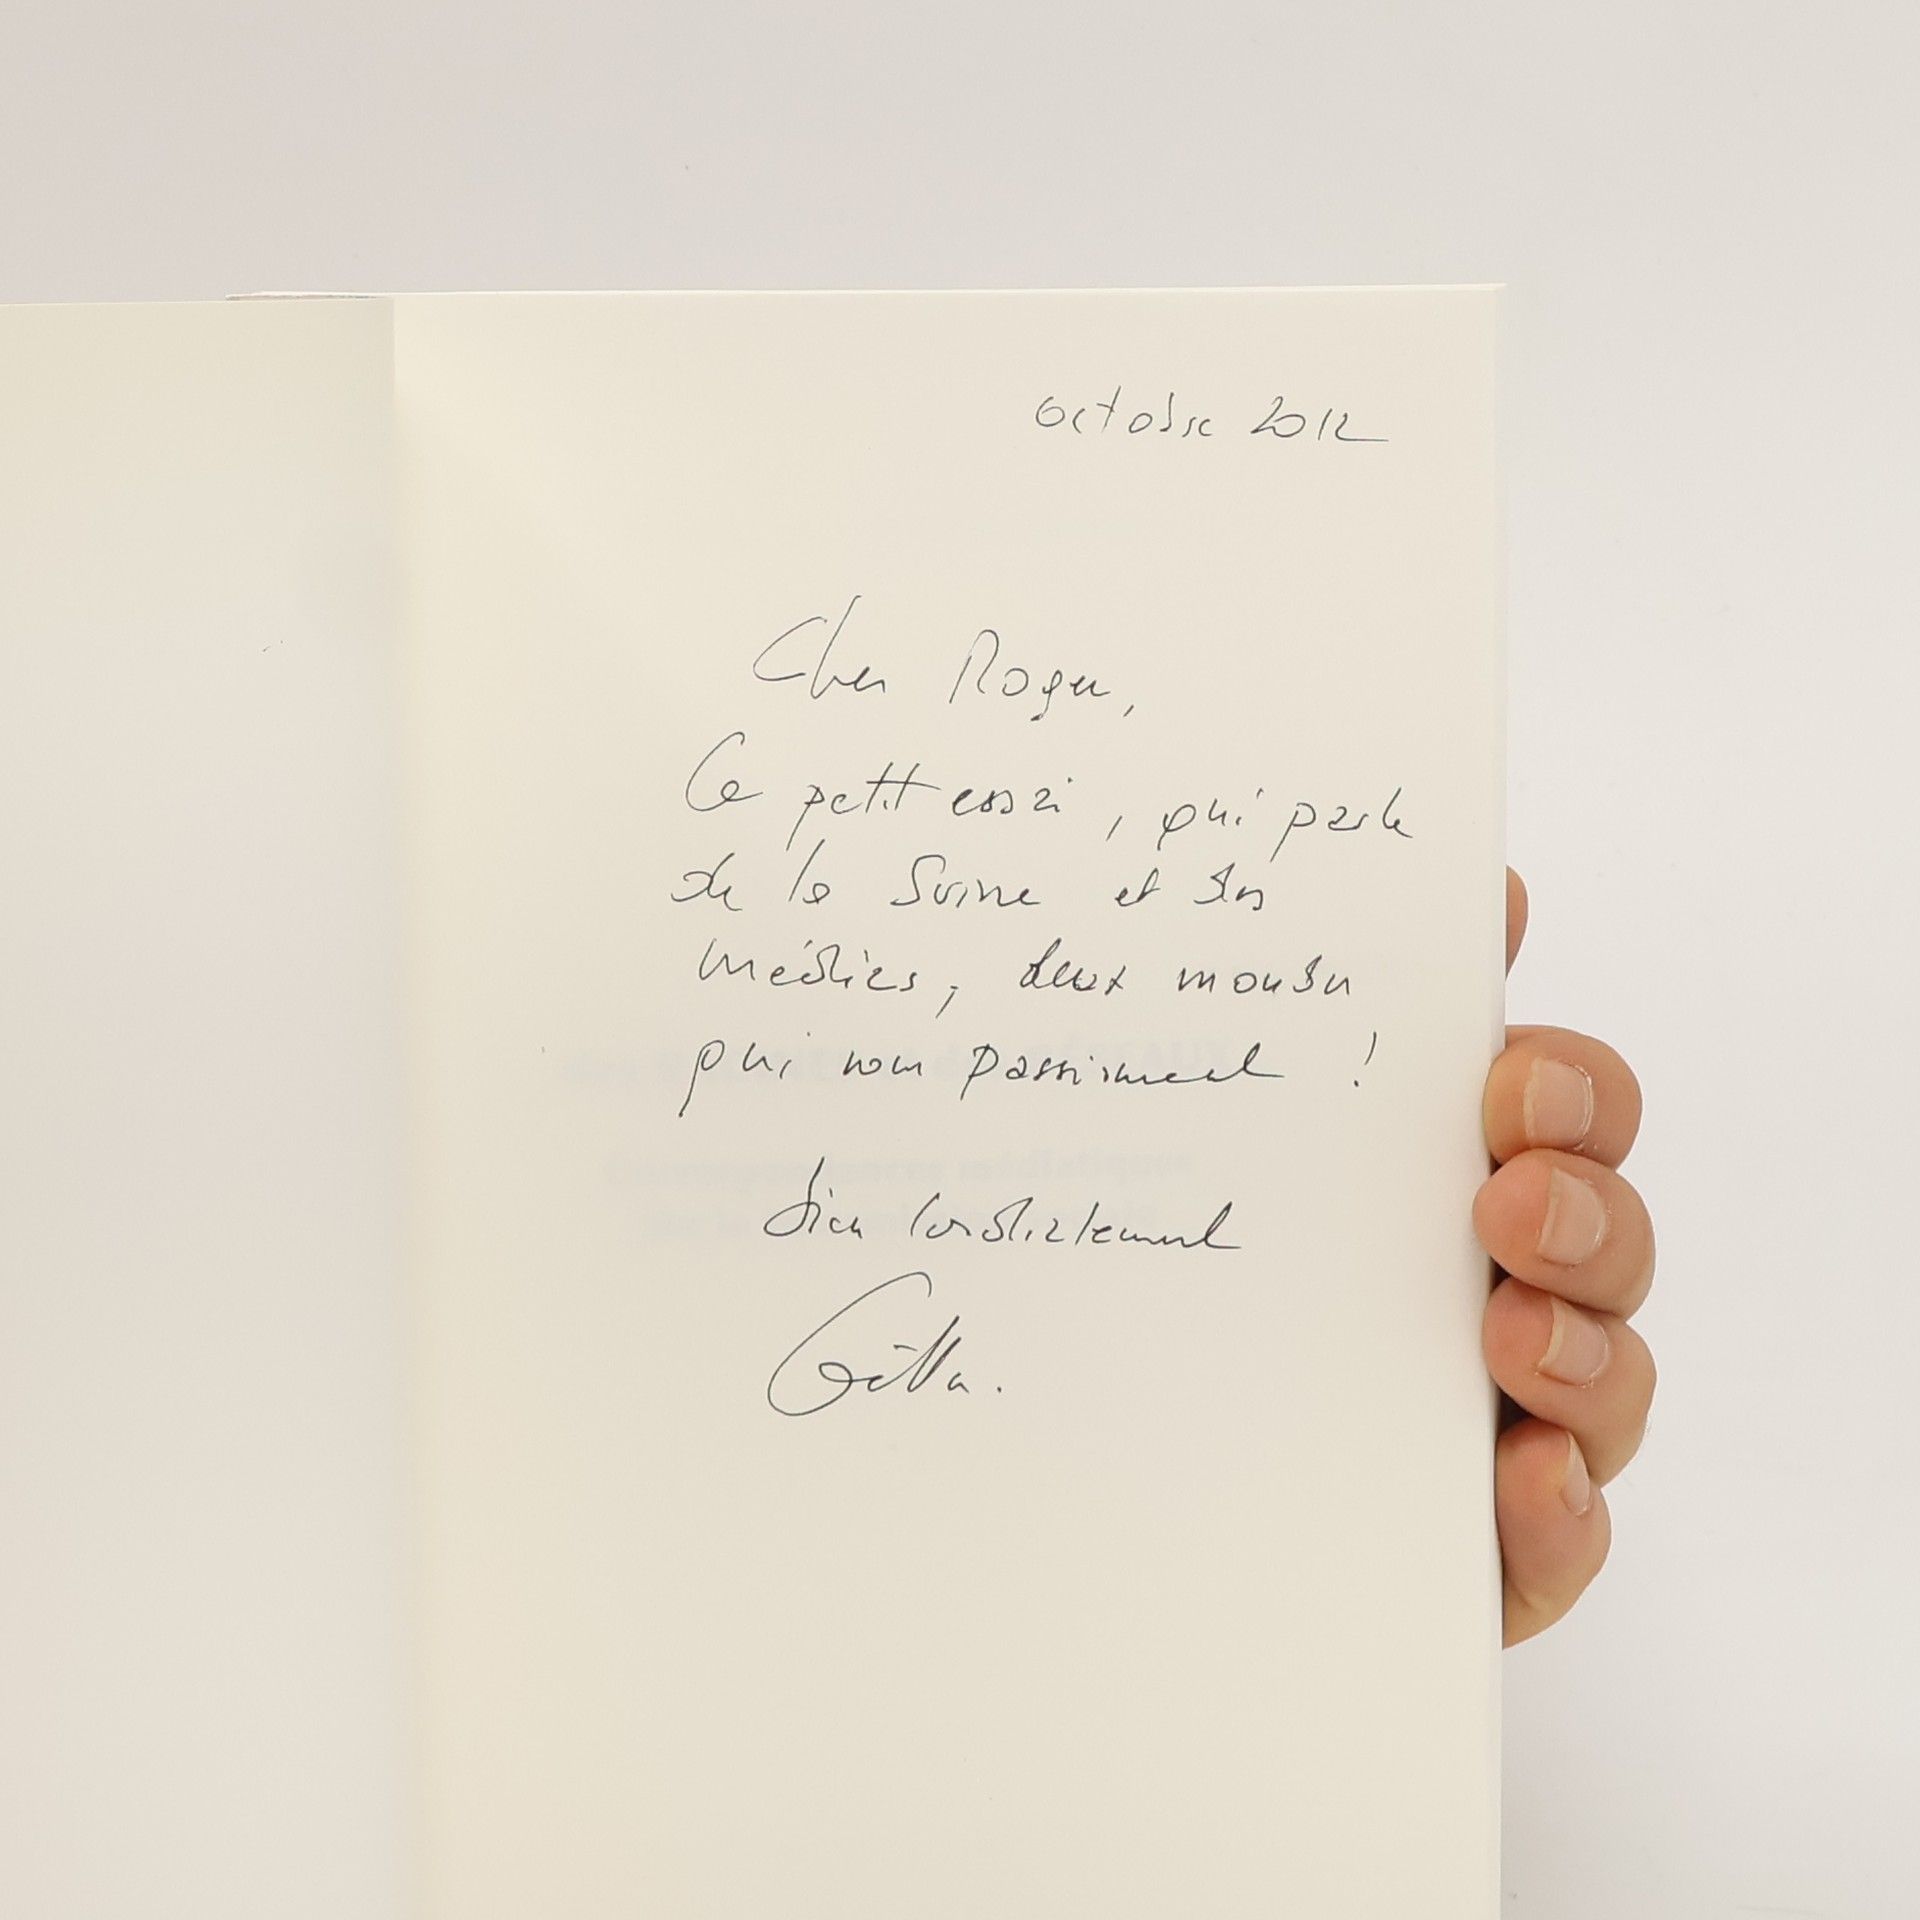 octobre 2012
Cher Roger,
Ce petit essai, qui parle
de la Suisse et des
médias, deux mondes
qui nous passionnent !
bien cordialement